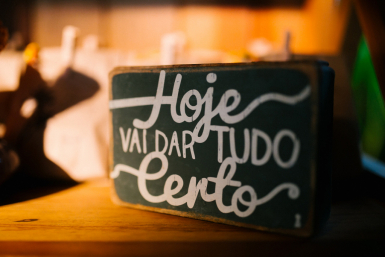 Hoje
VAI DAR TUDO
Certo